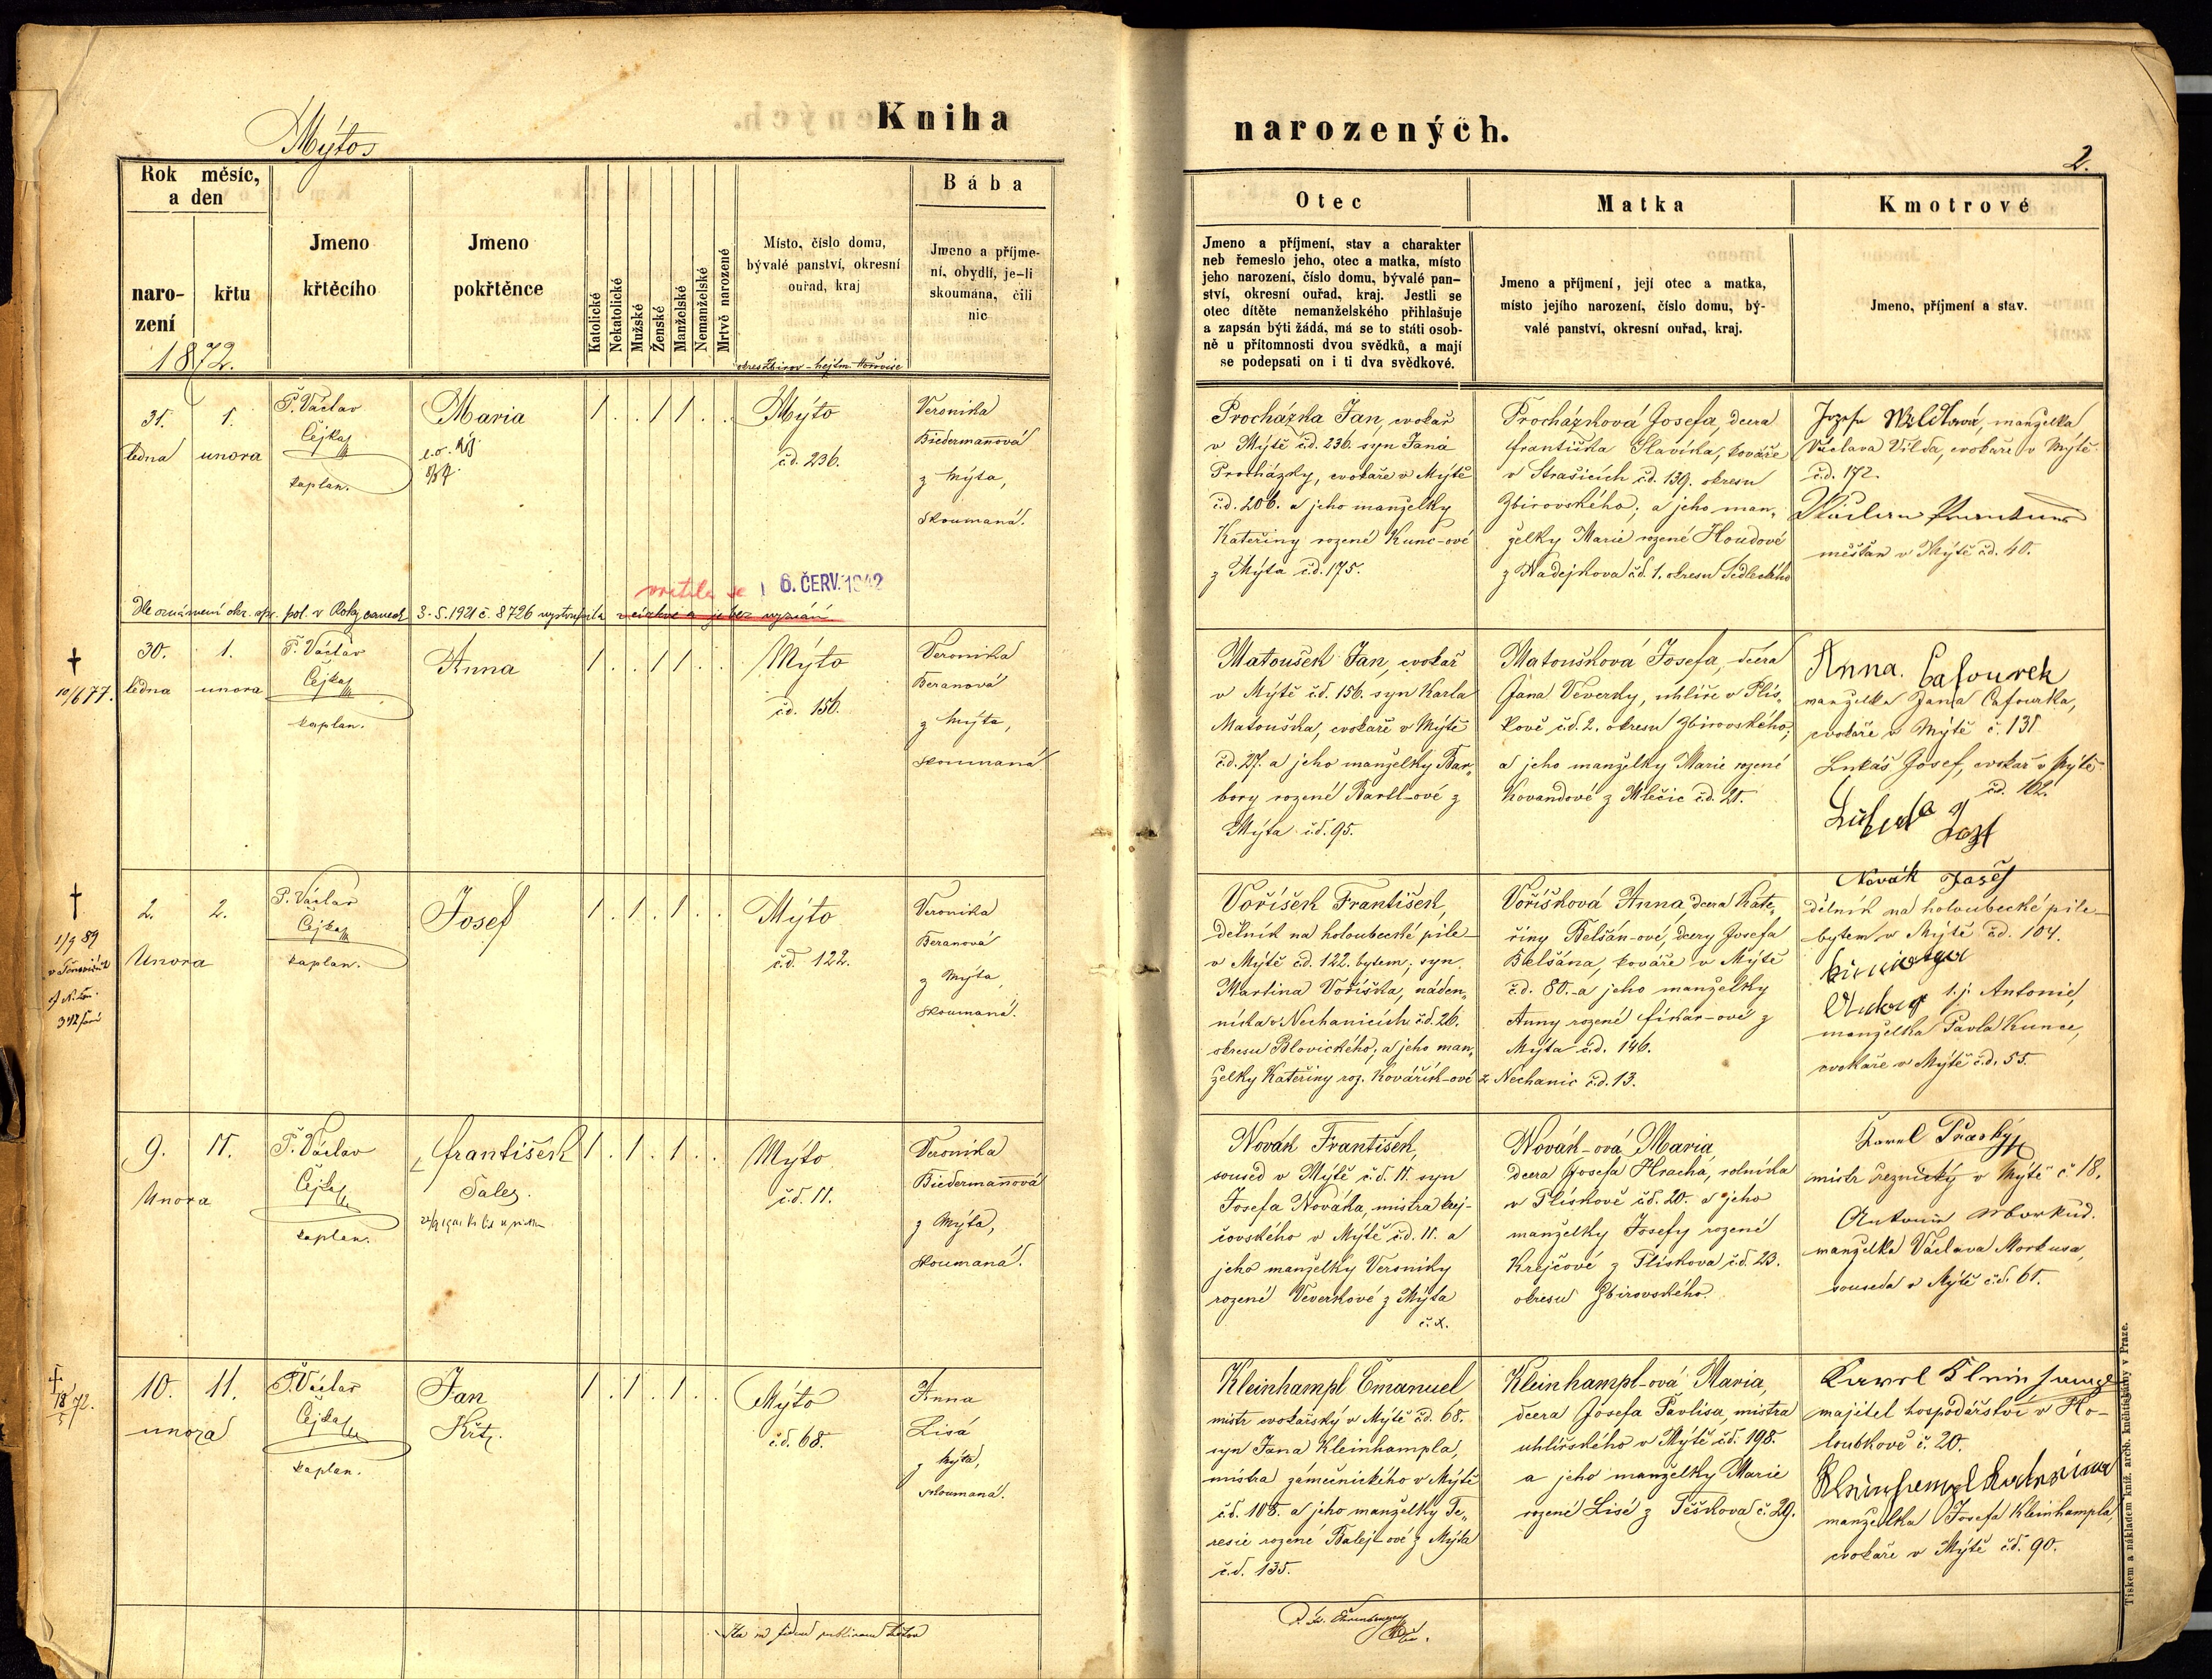 Kniha
narozených.
Mýto
2.
Rok měsíc,
a den
naro-
zení
křtu
1872.
Jmeno
křtěcího
Jmeno
pokřtěnce
Katolické
Nekatolické
Mužské
Ženské
Manželské
Nemanželské
Mrtvě narozené
Místo, číslo domu,
bývalé panství, okresní
ouřad, kraj
okres Zbirov - hejtm. Hořovice
Bába
Jmeno a příjme-
ní, obydlí, je-li
skoumána, čili
nic
Otec
Jmeno a příjmení, stav a charakter
neb řemeslo jeho, otec a matka, místo
jeho narození, číslo domu, bývalé pan-
ství, okresní ouřad, kraj. Jestli se
otec dítěte nemanželského přihlašuje
a zapsán býti žádá, má se to státi osob-
ně u přítomnosti dvou svědků, a mají
se podepsati on i ti dva svědkové.
Matka
Jmeno a příjmení, její otec a matka,
místo jejího narození, číslo domu, bý-
valé panství, okresní ouřad, kraj.
Kmotrové
Jmeno, příjmení a stav.
31.
ledna
1.
unora
P. Václav
Čejka
kaplan.
Maria
1 . . 1 1 . .
Mýto
č.d. 236.
Veronika
Biedermannová
z Mýta,
skoumaná.
Procházka Jan, cvokař
v Mýtě č.d. 236. syn Jana
Procházky, cvokaře v Mýtě
č.d. 206. a jeho manželky
Kateřiny rozené Kunc-ové
z Mýta č.d. 175.
Procházková Josefa, dcera
Františka Slavíka, kováře
v Strašicích č.d. 139. okresu
Zbirovského; a jeho man-
želky Marie rozené Houdové
z Nadejkova č.d. 1. okresu Sedleckého
manželka
Václava Vilda, cvokaře v Mýtě
č.d. 172.
měšťan v Mýtě č.d. 40.
Dle oznámení okr. spr. pol. v Rokycanech 3.-5. 1921 č. 8726 vystoupila z církve a je bez vyznání
vrátila se
6. ČERV. 1942
10/6 77.
30.
ledna
1.
unora
P. Václav
Čejka
kaplan.
Anna
1 . . 1 1 . .
Mýto
č.d. 156.
Veronika
Beranová
z Mýta,
skoumaná.
Matoušek Jan, cvokař
v Mýtě č.d. 156. syn Karla
Matouška, cvokaře v Mýtě
č.d. 27. a jeho manželky Bar-
bory rozené Bartl-ové z
Mýta č.d. 95.
Matoušková Josefa, dcera
Jana Veverky, uhlíře v Plís-
kově č.d. 2. okresu Zbirovského;
a jeho manželky Marie rozené
Kovandové z Mlečic č.d. 21.
Anna Cafourek
manželka Jana Cafourka,
cvokaře v Mýtě č. 131
Lukáš Josef, cvokař v Mýtě
č.d. 102.
1/9 89
2.
Unora
2.
P. Václav
Čejka
kaplan.
Josef
1 . 1 . 1 . .
Mýto
č.d. 122.
Veronika
Beranová
z Mýta,
skoumaná.
Voříšek František,
dělník na holoubecké pile
v Mýtě č.d. 122. bytem; syn
Martina Voříška, náden-
níka v Nechanicích č.d. 26.
okresu Blovického; a jeho man-
želky Kateřiny roz. Kovářík-ové z Nechanic č.d. 13.
Voříšková Anna, dcera Kate-
řiny Belšán-ové, dcery Josefa
Belšána, kováře v Mýtě
č.d. 80. a jeho manželky
Anny rozené Fikar-ové z
Mýta č.d. 146.
Novák
dělník na holoubecké pile
bytem v Mýtě č.d. 104.
t.j. Antonie,
manželka Pavla Kunce,
cvokaře v Mýtě č.d. 55.
9.
Unora
11.
P. Václav
Čejka
kaplan.
František
Sales.
1 . 1 . 1 . .
Mýto
č.d. 11.
Veronika
Biedermannová
z Mýta,
skoumaná.
Novák František,
soused v Mýtě č.d. 11. syn
Josefa Nováka, mistra krej-
čovského v Mýtě č.d. 11. a
jeho manželky Veroniky
rozené Veverkové z Mýta
Novák-ová Maria,
dcera Josefa Hracha, rolníka
v Plískově č.d. 20. a jeho
manželky Josefy rozené
Krejčové z Plískova č.d. 23.
okresu Zbirovského.
Karel
mistr řeznický v Mýtě č. 18.
manželka Václava Morkusa,
souseda v Mýtě č.d. 61.
10.
unora
11.
P. Václav
Čejka
kaplan.
Jan
Křt.
1 . 1 . 1 . .
Mýto
č.d. 68.
Anna
Lisá
z Mýta,
skoumaná.
Kleinhampl Emanuel,
mistr cvokařský v Mýtě č.d. 68.
syn Jana Kleinhampla,
mistra zámečnického v Mýtě
č.d. 108. a jeho manželky Te-
resie rozené Balej-ové z Mýta
č.d. 135.
Kleinhampl-ová Maria,
dcera Josefa Pavlisa, mistra
uhlířského v Mýtě č.d. 198.
a jeho manželky Marie
rozené Lisé z Těškova č. 29.
Karel Kleinhampl
majitel hospodářství v Ho-
loubkově č. 20.
Kleinhampl
manželka Josefa Kleinhampla,
cvokaře v Mýtě č.d. 90.
Tiskem a nákladem kníž. arcib. kněhtiskárny v Praze.